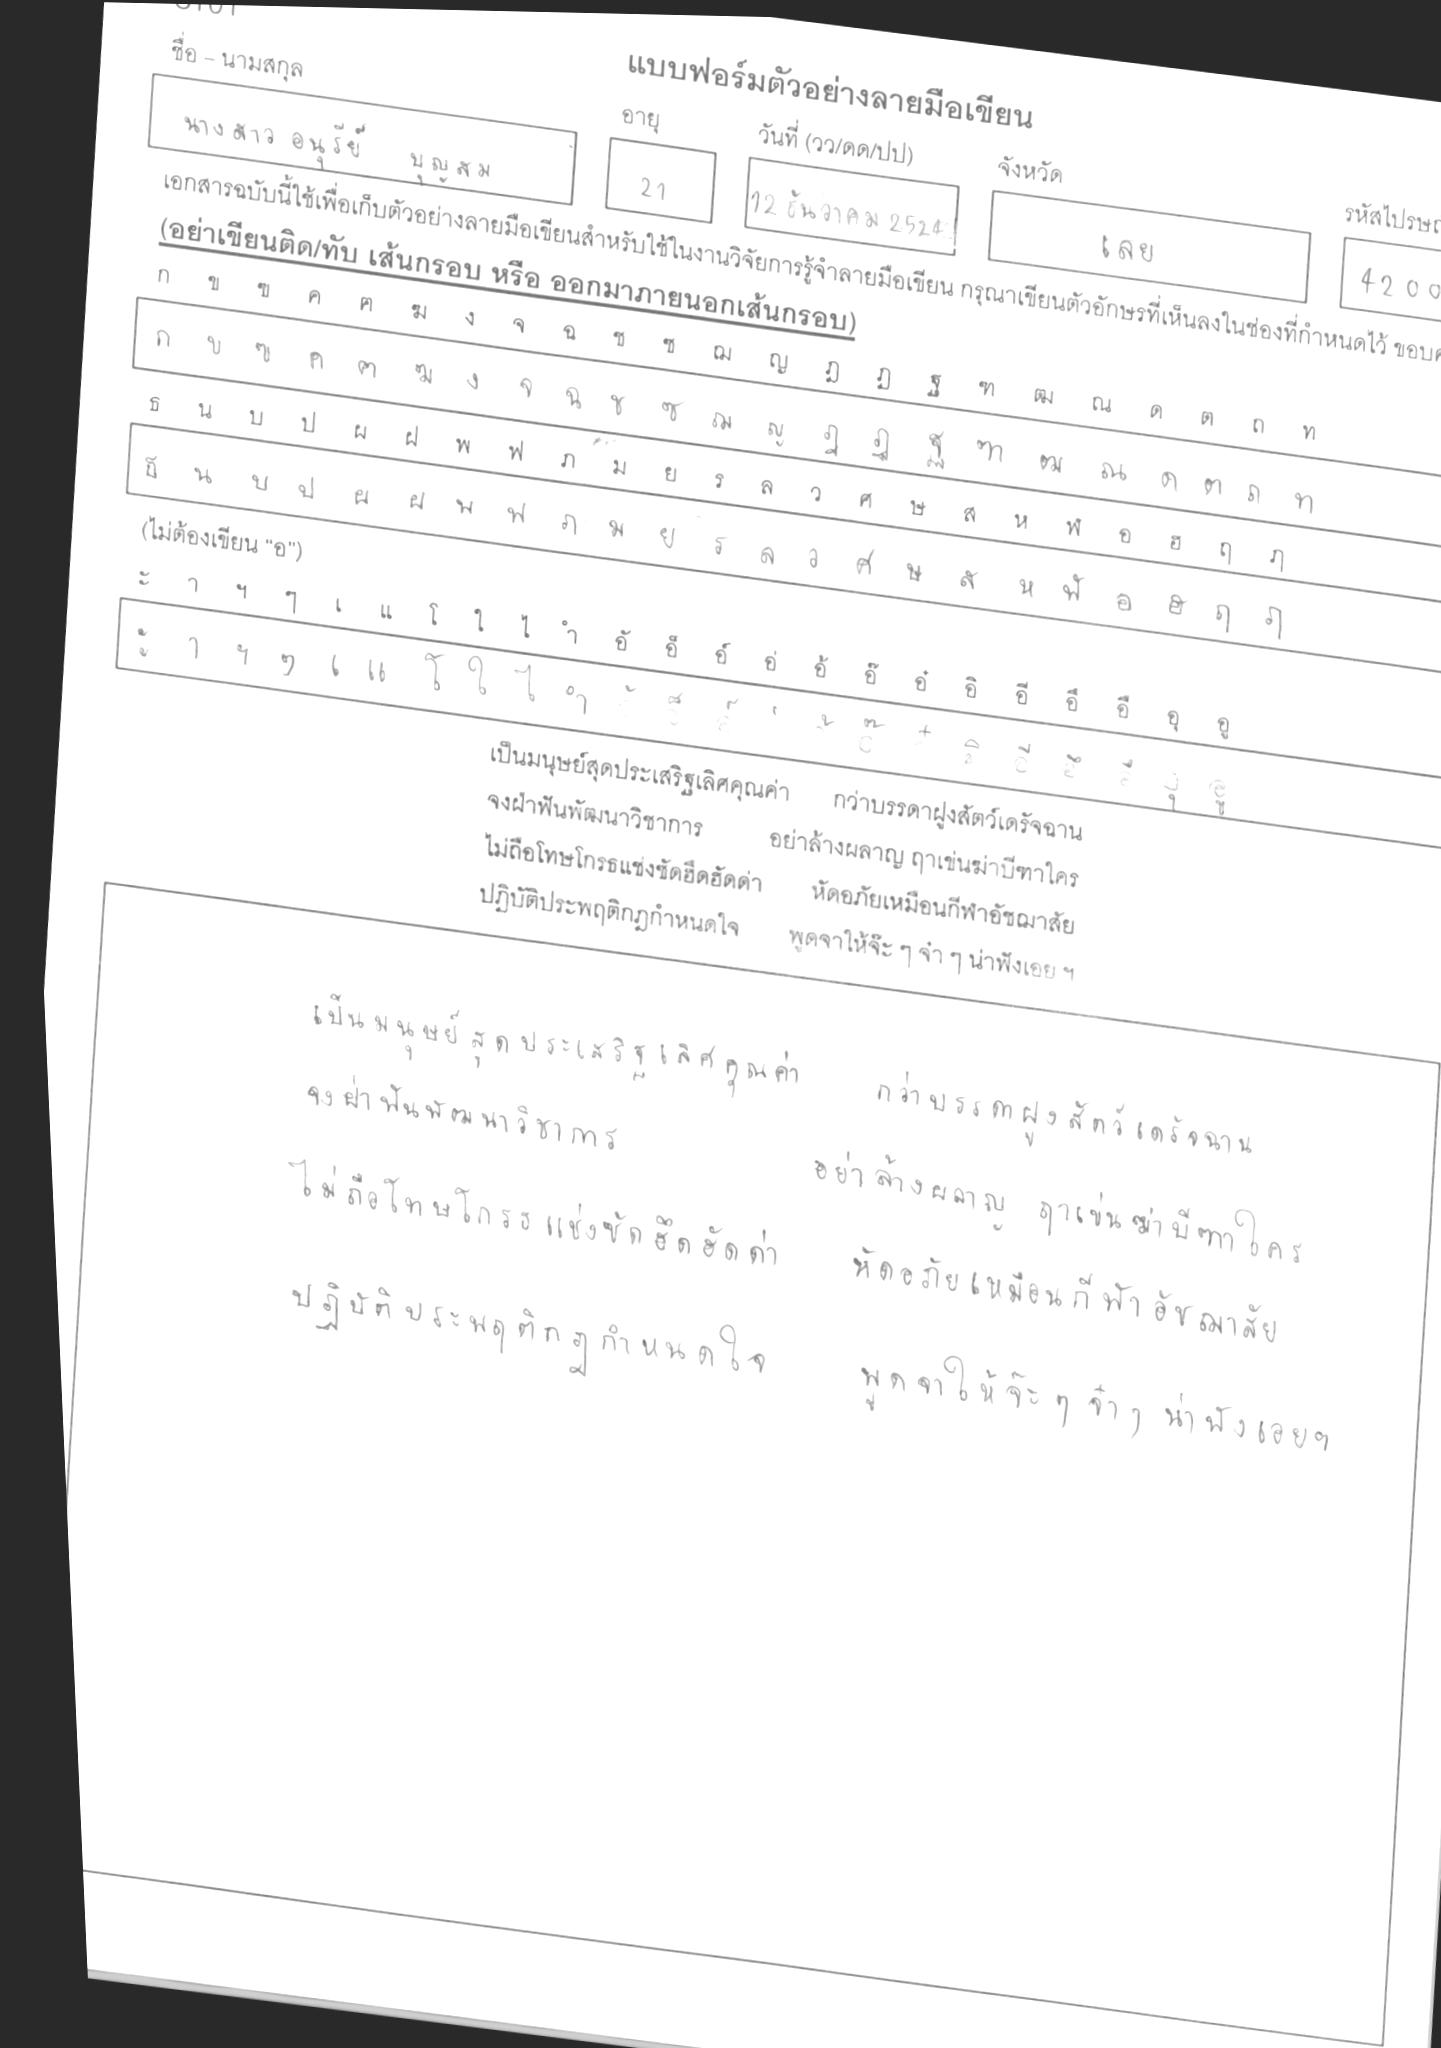 แบบฟอร์มตัวอย่างลายมือเขียน
ชื่อ - นามสกุล
อายุ
วันที่ (วว/ดด/ปป)
จังหวัด
นางสาว อนุรีย์ บุญสม
21
12 ธันวาคม 2524
เลย
เอกสารฉบับนี้ใช้เพื่อเก็บตัวอย่างลายมือเขียนสำหรับใช้ในงานวิจัยการรู้จำลายมือเขียน กรุณาเขียนตัวอักษรที่เห็นลงในช่องที่กำหนดไว้
(อย่าเขียนติด/ทับ เส้นกรอบ หรือ ออกมาภายนอกเส้นกรอบ)
ก ข ฃ ค ฅ ฆ ง จ ฉ ช ซ ฌ ญ ฎ ฏ ฐ ฑ ฒ ณ ด ต ถ ท
ก ข ฃ ค ฅ ฆ ง จ ฉ ช ซ ฌ ญ ฎ ฏ ฐ ฑ ฒ ณ ด ต ถ ท
ธ น บ ป ผ ฝ พ ฟ ภ ม ย ร ล ว ศ ษ ส ห ฬ อ ฮ ฤ ฦ
ธ น บ ป ผ ฝ พ ฟ ภ ม ย ร ล ว ศ ษ ส ห ฬ อ ฮ ฤ ฦ
(ไม่ต้องเขียน "อ")
ะ า ฯ ๆ เ แ โ ใ ไ ำ อั อ็ อ์ อ่ อ้ อ๊ อ๋ อิ อี อึ อื อุ อู
ะ า ฯ ๆ เ แ โ ใ ไ ำ ั ็ ์ ่ ้ ๊ ๋ ิ ี ึ ื ุ ู
เป็นมนุษย์สุดประเสริฐเลิศคุณค่า กว่าบรรดาฝูงสัตว์เดรัจฉาน
จงฝ่าฟันพัฒนาวิชาการ อย่าล้างผลาญ ฤาเข่นฆ่าบีฑาใคร
ไม่ถือโทษโกรธแช่งซัดฮึดฮัดด่า หัดอภัยเหมือนกีฬาอัชฌาสัย
ปฏิบัติประพฤติกฎกำหนดใจ พูดจาให้จ๊ะ ๆ จ๋า ๆ น่าฟังเอย ฯ
เป็นมนุษย์สุดประเสริฐเลิศคุณค่า กว่าบรรดาฝูงสัตว์เดรัจฉาน
จงฝ่าฟันพัฒนาวิชาการ อย่าล้างผลาญ ฤาเข่นฆ่าบีฑาใคร
ไม่ถือโทษโกรธแช่งซัดฮึดฮัดด่า หัดอภัยเหมือนกีฬาอัชฌาสัย
ปฏิบัติประพฤติกฎกำหนดใจ พูดจาให้จ๊ะ ๆ จ๋า ๆ น่าฟังเอยฯ